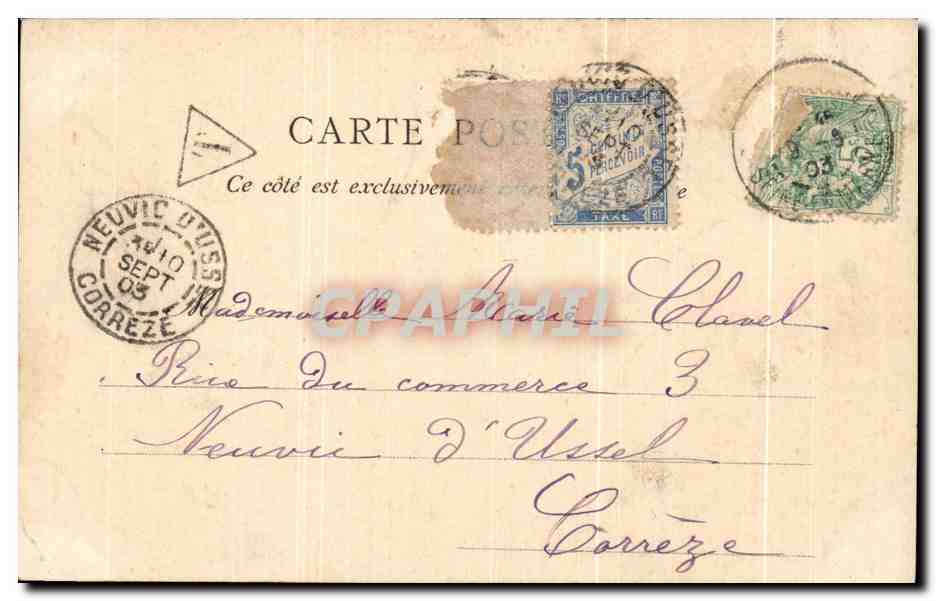 CARTE POS
Ce côté est exclusivement
T
CHIFFRE
5
CENTIMES
PERCEVOIR
TAXE
5
03
NEUVIC D'USSEL
10
SEPT
03
CORRÈZE
CPAPHIL
Mademoiselle Marie Clavel
Rue du commerce 3
Neuvic d'Ussel
Corrèze